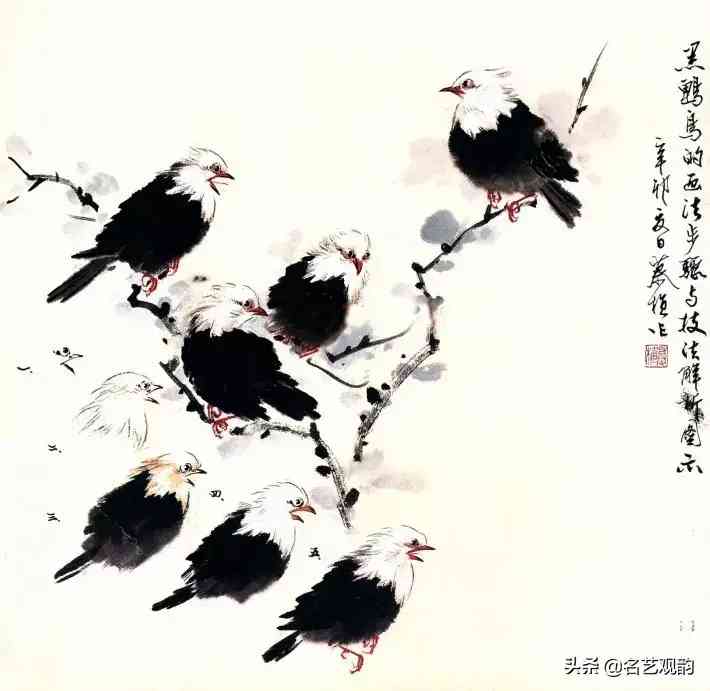 黑鵯鳥的画法步驟与技法解析圖示
辛卯夏日慕作
一、
二、
三、
四、
五、
头条 @名艺观韵